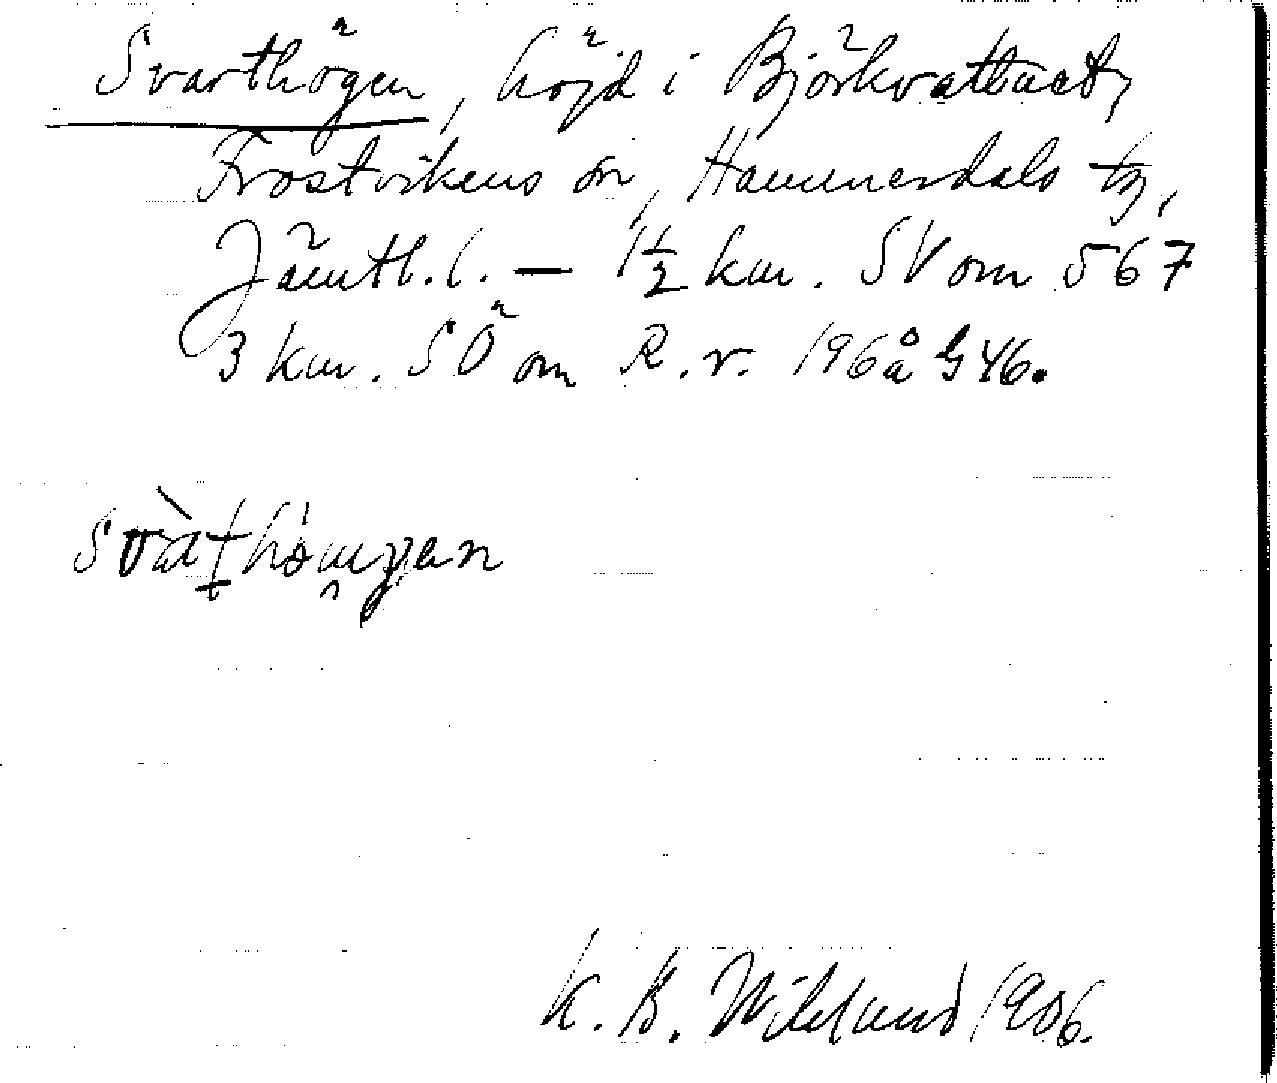 Svarthögen, höjd i Björkvattnet,
Frostvikens sn, Hammerdals tg,
Jämtl. l. — 1½ km. SV om 567
3 km. SÖ om R.r. 196 å G 46.
K. B. Wiklund 1906.